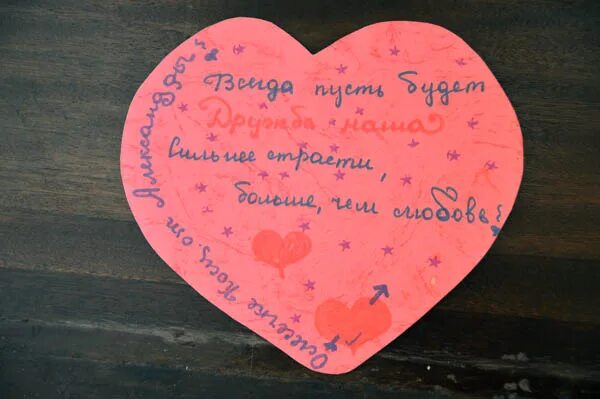 Всегда пусть будет
Дружба наша
Сильнее страсти,
больше, чем любовь!
Олесечке Косц. от Александры